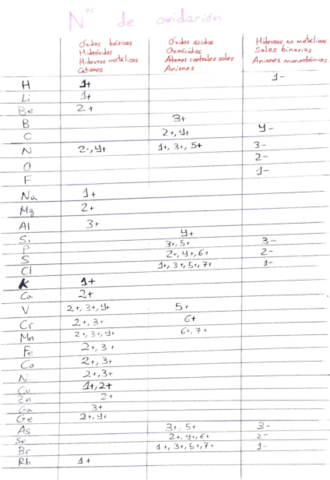 Nos de oxidación
Óxidos básicos Óxidos ácidos Hidruros no metálicos
Hidróxidos Oxoácidos Sales binarias
Hidruros metálicos Átomos centrales sales Aniones monoatómicos
Cationes Aniones
H 1+ 1-
Li 1+
Be 2+
B 3+
C 2+, 4+ 4-
N 2+, 4+ 1+, 3+, 5+ 3-
O 2-
F 1-
Na 1+
Mg 2+
Al 3+
Si 4+
P 3+, 5+ 3-
S 2+, 4+, 6+ 2-
Cl 1+, 3+, 5+, 7+ 1-
K 1+
Ca 2+
V 2+, 3+, 4+ 5+
Cr 2+, 3+ 6+
Mn 2+, 3+, 4+ 6+, 7+
Fe 2+, 3+
Co 2+, 3+
Ni 2+, 3+
Cu 1+, 2+
Zn 2+
Ga 3+
Ge 2+, 4+
As 3+, 5+ 3-
Se 2+, 4+, 6+ 2-
Br 1+, 3+, 5+, 7+ 1-
Rb 1+